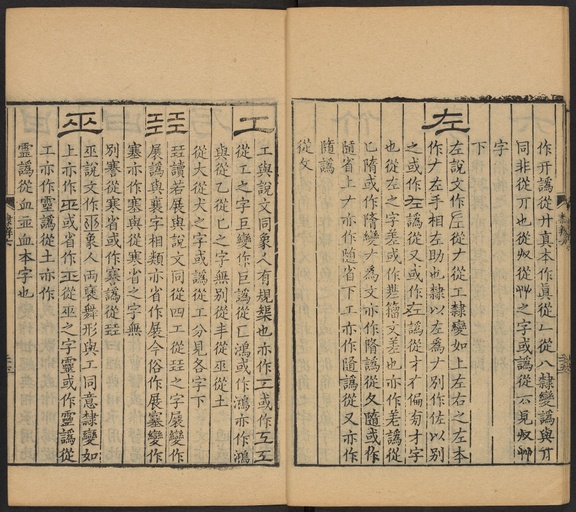 作开譌從廾真本作眞從乚從八隸變譌與丌
同非從丌也從𠬞從艸之字或譌從六見𠬞艸
字
下
左
左說文作𠂇從𠂇從工隸變如上左右之左本
作𠂇左手相左助也隸以左爲𠂇別作佐以別
之或作左譌從又或作左譌從才才偏旁才字
也從左之字差或作差籒文差也亦作羌譌從
隨或作隋變𠂇爲文亦作隋譌從夂隨或作
隨省上𠂇亦作隨省下工亦作隨譌從又亦作
隨譌
從攵
工
工與說文同象人有規榘也亦作工或作互
從工之字巨變作巨譌從匚鴻或作鴻亦作鴻
與從乙從匕之字無別從丰從巫從土
從大從犬之字或譌從工分見各字下
㠭
㠭讀若展與說文同從四工從㠭之字展變作
展譌與襄字相類亦省作展今俗作展塞變作
塞亦作塞與從寒省之字無
別謇從寒省或作寋譌從㠭
巫
巫說文作巫象人兩褎舞形與工同意隸變如
上亦作巫或省作巫從巫之字靈或作靈譌從
工亦作靈譌從土亦作
靈譌從血並血本字也